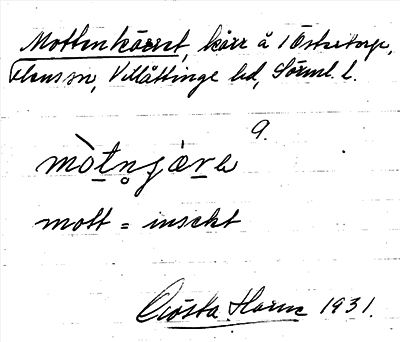 Mottenkärret, kärr å 1 Österstorp,
Flens sn, Villåttinge hd, Sörml. l.
9.
mòtnʃærə
mott = insekt
Gösta Harm 1931.